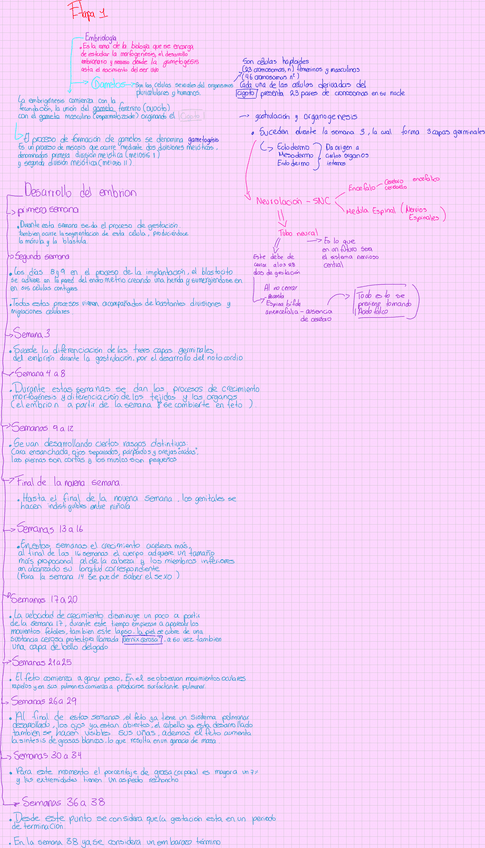 Etapa 1
Embriología
• Es la rama de la biología que se encarga
de estudiar la morfogenesis, el desarrollo
embrionario y nervioso desde la gametogenesis
hasta el nacimiento del ser vivo
Gametos
Son las células sexuales del organismo
pluricelulares y humanos.
Son células haploides
(23 cromosomas, n) femeninos y masculinos
(46 cromosomas n²)
Cada una de las células derivadas del
cigoto presenta 23 pares de cromosomas en su nucle
La embriogénesis comienza con la
fecundación, la unión del gameto femenino (ovocito)
con el gameto masculino (espermatozoide) originando el cigoto
El proceso de formación de gametos se denomina gametogenesis
Es un proceso de meiosis que ocurre mediante dos divisiones meioticas,
denominadas primera división meiotica (meiosis I)
y segunda división meiotica (meiosis II)
gastrulación y organogenesis
• Sucedan durante la semana 3, la cual forma 3 capas germinales
Ectodermo
Mesodermo
Endodermo
Da origen a
todos organos
internos
Neurolación - SNC
Encefalo
Medula Espinal (Nervios
Espinales)
Tubo neural
Es lo que
en un futuro sera
el sistema nervioso
central
Este debe de
cerrar a los 28
dias de gestación
Al no cerrar
Espina bifida
anencefalia - ausencia
de cerebro
Todo esto se
previene tomando
Acido folico
Desarrollo del embrion
primera semana
• Durante esta semana se da el proceso de gestación
tambien ocurre la segmentación de esta celula, produciendose
la mórula y la blastula.
Segunda semana
• Los dias 8 y 9 en el proceso de la implantación, el blastocito
se adhiere en la pared del endometrio creando una herida y sumergiendose en
en sus celulas contiguas.
• Todos estos procesos vienen acompañados de bastantes divisiones y
migraciones celulares.
Semana 3
• Sucede la diferenciación de las tres capas germinales
del embrión durante la gastrulación, por el desarrollo del notocordio
Semana 4 a 8
• Durante estas semanas se dan los procesos de crecimiento
morfogénesis y diferenciación de los tejidos y los organos
(el embrion a partir de la semana 9 se convierte en feto)
Semanas 9 a 12
• Se van desarrollando ciertos rasgos distintivos
Cara ensanchada, ojos separados, parpados y orejas "unidas",
las piernas son cortas y los muslos son pequeños
Final de la novena semana
• Hasta el final de la novena semana, los genitales se
hacen indistiguibles entre niño/a
Semanas 13 a 16
• En estas semanas el crecimiento acelera más,
al final de las 16 semanas el cuerpo adquiere un tamaño
mas proporcional al de la cabeza y los miembros inferiores
an alcanzado su longitud correspondiente
(Para la semana 14 se puede saber el sexo)
Semanas 17 a 20
• La velocidad de crecimiento disminuye un poco a partir
de la semana 17, durante este tiempo empiezan a aparecer los
movimientos fetales, tambien este lapso, la piel se cubre de una
sustancia cerosa protectora llamada vernix caseosa, a su vez tambien
una capa de bello delgado
Semanas 21 a 25
• El feto comienza a ganar peso. En el se observan movimientos oculares
rapidos y en sus pulmones comienza a producirse surfactante pulmonar.
Semanas 26 a 29
• Al final de estas semanas, el feto ya tiene un sistema pulmonar
desarrollado, los ojos ya estan abiertos, el cabello ya esta desarrollado
tambien se hacen visibles sus uñas, ademas el feto aumenta
la sintesis de grasas blancas, lo que resulta en un ganancia de masa
Semanas 30 a 34
• Para este momento el porcentaje de grasa corporal es mayor a un 7%
y sus extremidades tienen un aspecto rechoncho
Semanas 36 a 38
• Desde este punto se considera que la gestación esta en un periodo
de terminación.
• En la semana 38 ya se considera un embarazo termino